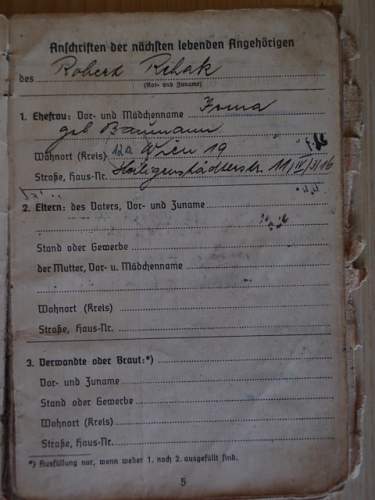 Anschriften der nächsten lebenden Angehörigen
des Robert Rehak
(Vor- und Zuname)
1. Ehefrau: Vor- und Mädchenname Irma
geb Baumann
Wohnort (Kreis) 12a Wien 19
Straße, Haus-Nr. Heiligenstädterstr. 11/
2. Eltern: des Vaters, Vor- und Zuname
Stand oder Gewerbe
der Mutter, Vor- u. Mädchenname
Wohnort (Kreis)
Straße, Haus-Nr.
3. Verwandte oder Braut:*)
Vor- und Zuname
Stand oder Gewerbe
Wohnort (Kreis)
Straße, Haus-Nr.
*) Ausfüllung nur, wenn weder 1. noch 2. ausgefüllt sind.
5